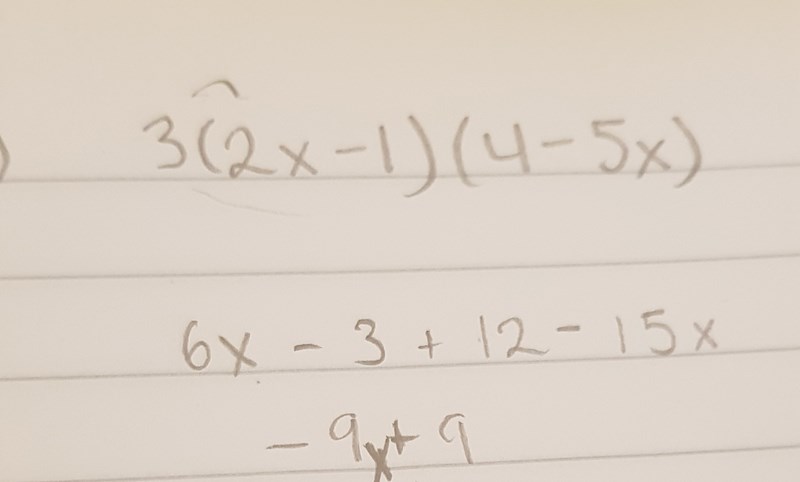 ) 3(2x-1)(4-5x)
6x - 3 + 12 - 15x
- 9x + 9